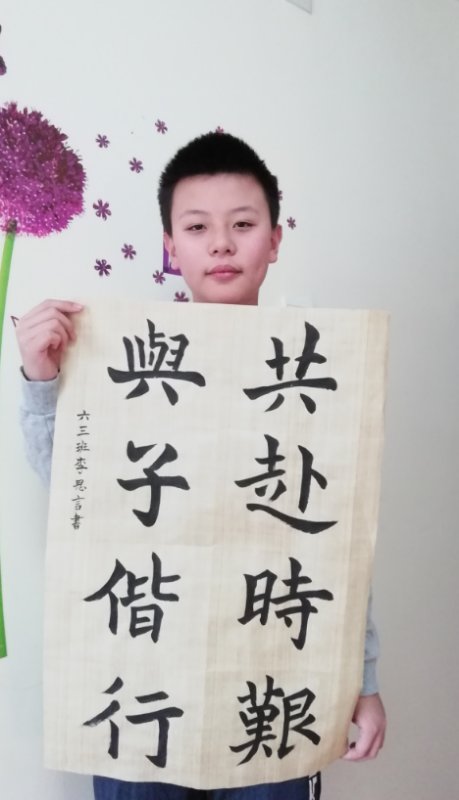 共赴時艱
與子偕行
六三班李思言書